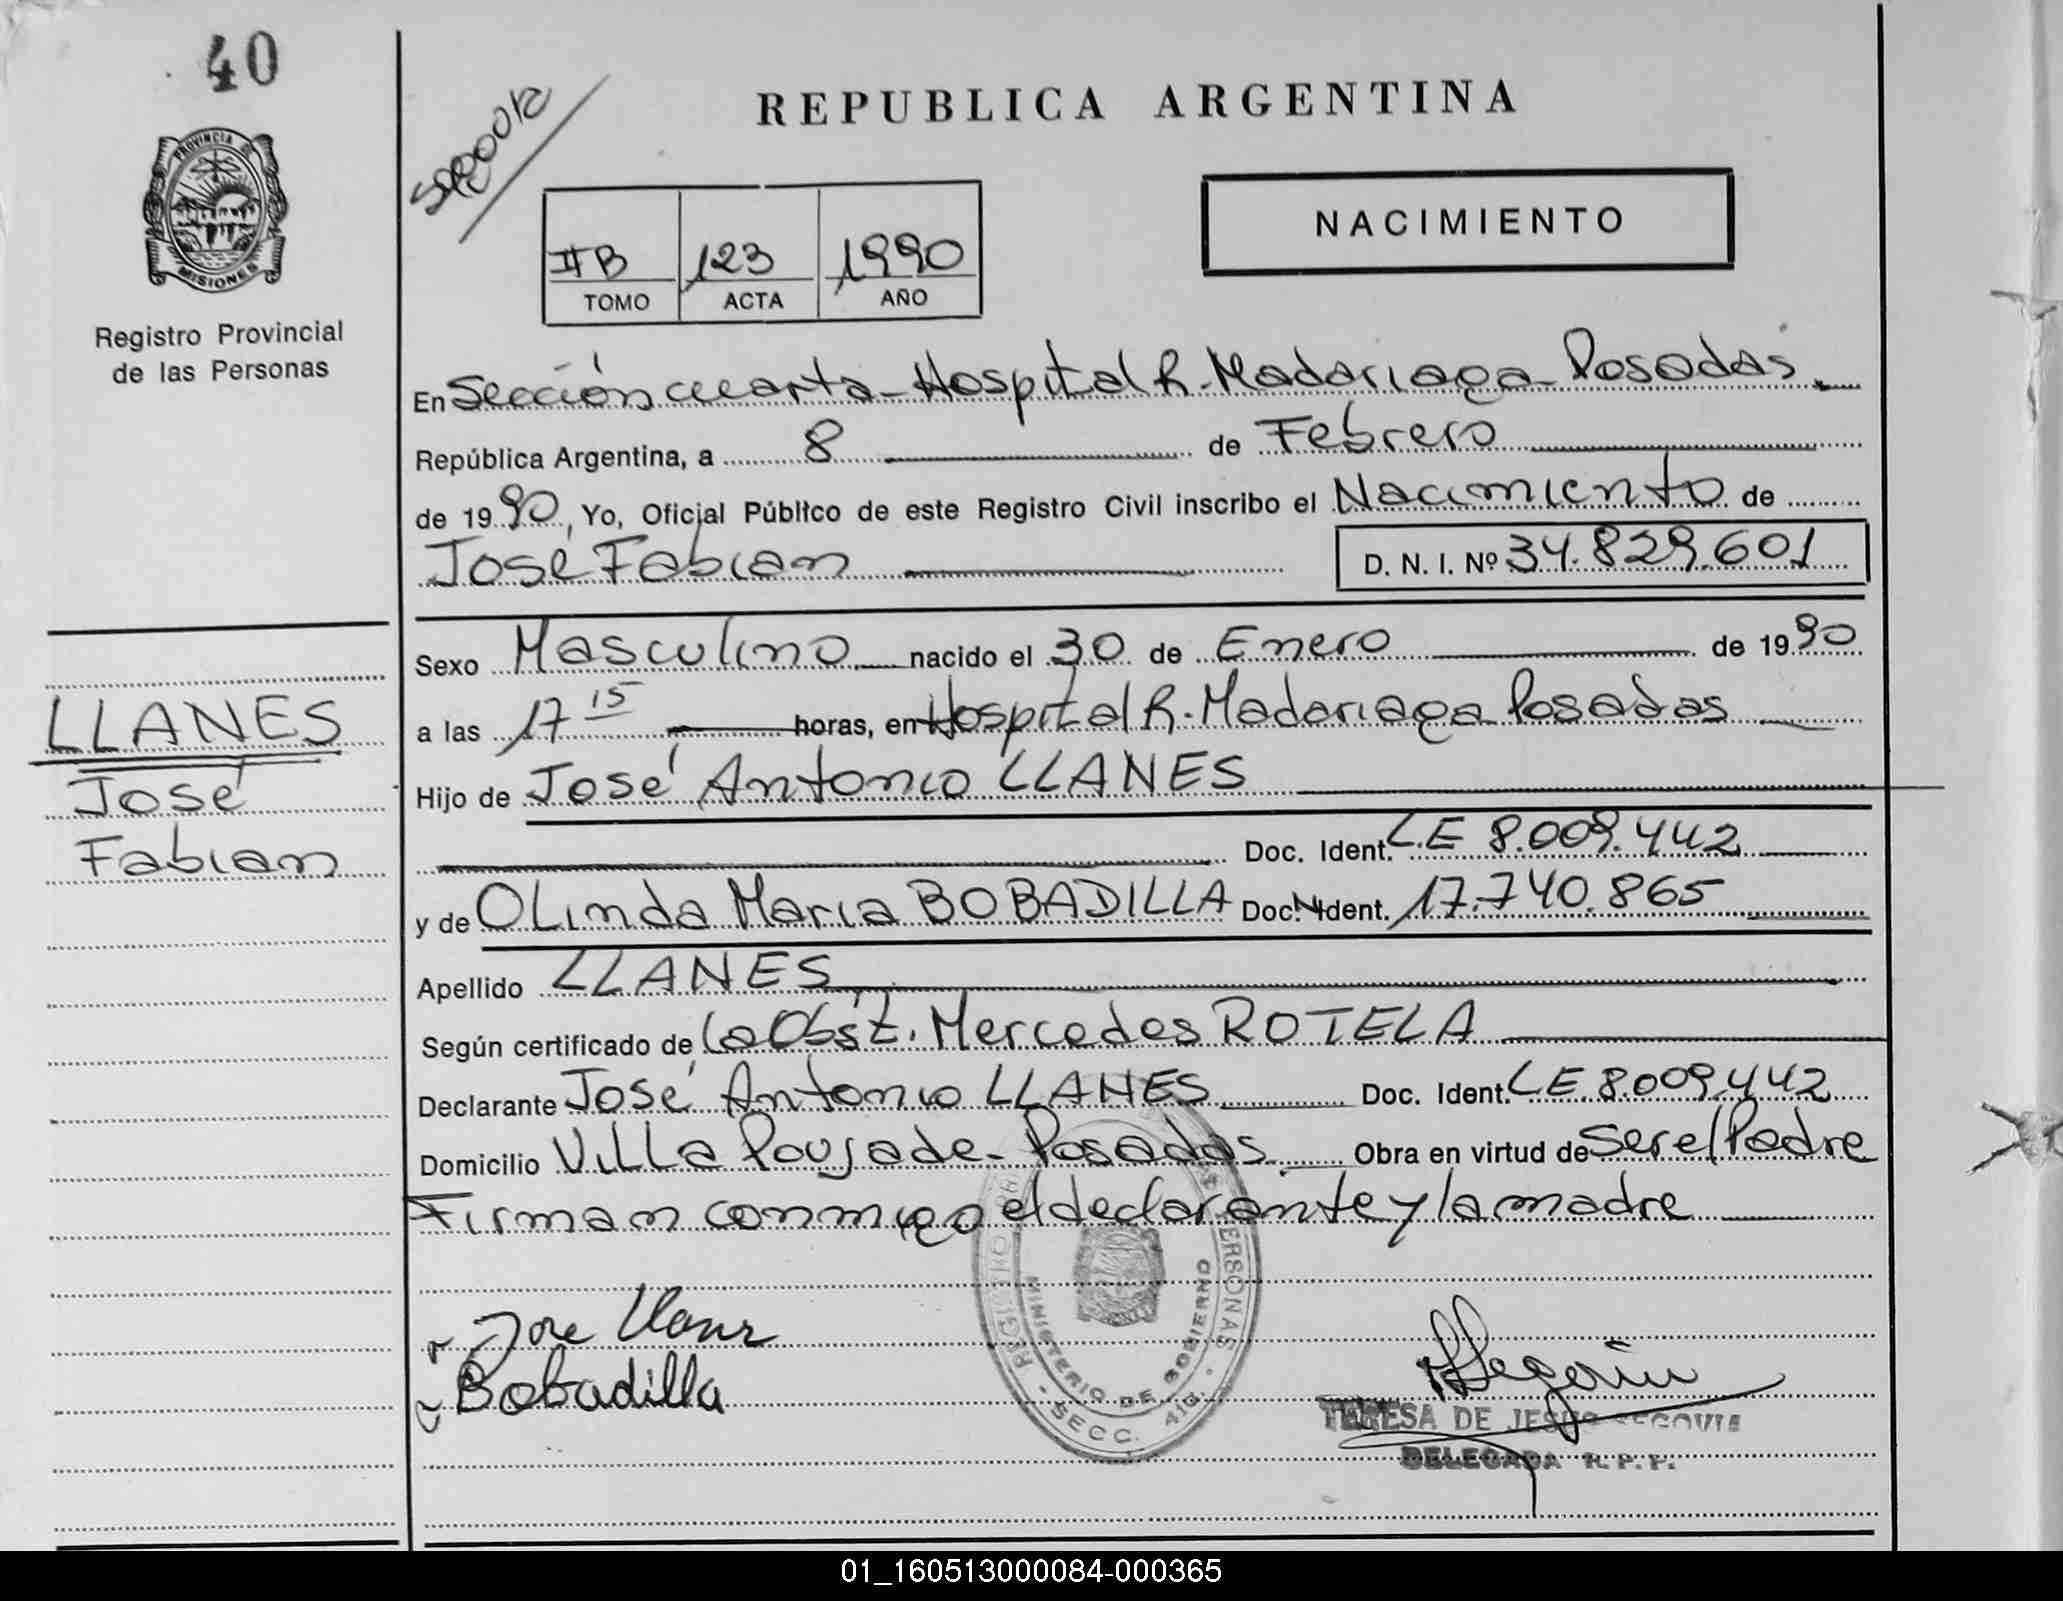 40
REPUBLICA ARGENTINA
PROVINCIA DE
MISIONES
Registro Provincial
de las Personas
NACIMIENTO
IIB 123 1990
TOMO ACTA AÑO
En Sección cuarta - Hospital R. Madariaga - Posadas.
República Argentina, a 8 de Febrero
de 1990, Yo, Oficial Público de este Registro Civil inscribo el Nacimiento de
José Fabian D. N. I. Nº 34.829.601
Sexo Masculino nacido el 30 de Enero de 1990
a las 17 15 horas, en Hospital R. Madariaga Posadas
LLANES
José
Fabian
Hijo de José Antonio LLANES
Doc. Ident. L.E 8.009.442
y de OLinda Maria BOBADILLA Doc. Ident. 17.740.865
Apellido LLANES
Según certificado de La Obst. Mercedes ROTELA
Declarante José Antonio LLANES Doc. Ident. LE 8.009.442
Domicilio Villa Poujade - Posadas. Obra en virtud de Ser el Padre
Firman conmigo el declarante y la madre
MINISTERIO DE GOBIERNO
SECC. 4ta.
Jose Llanes
Bobadilla
TERESA DE JESUS SEGOVIA
DELEGADA R.P.P.
01_160513000084-000365